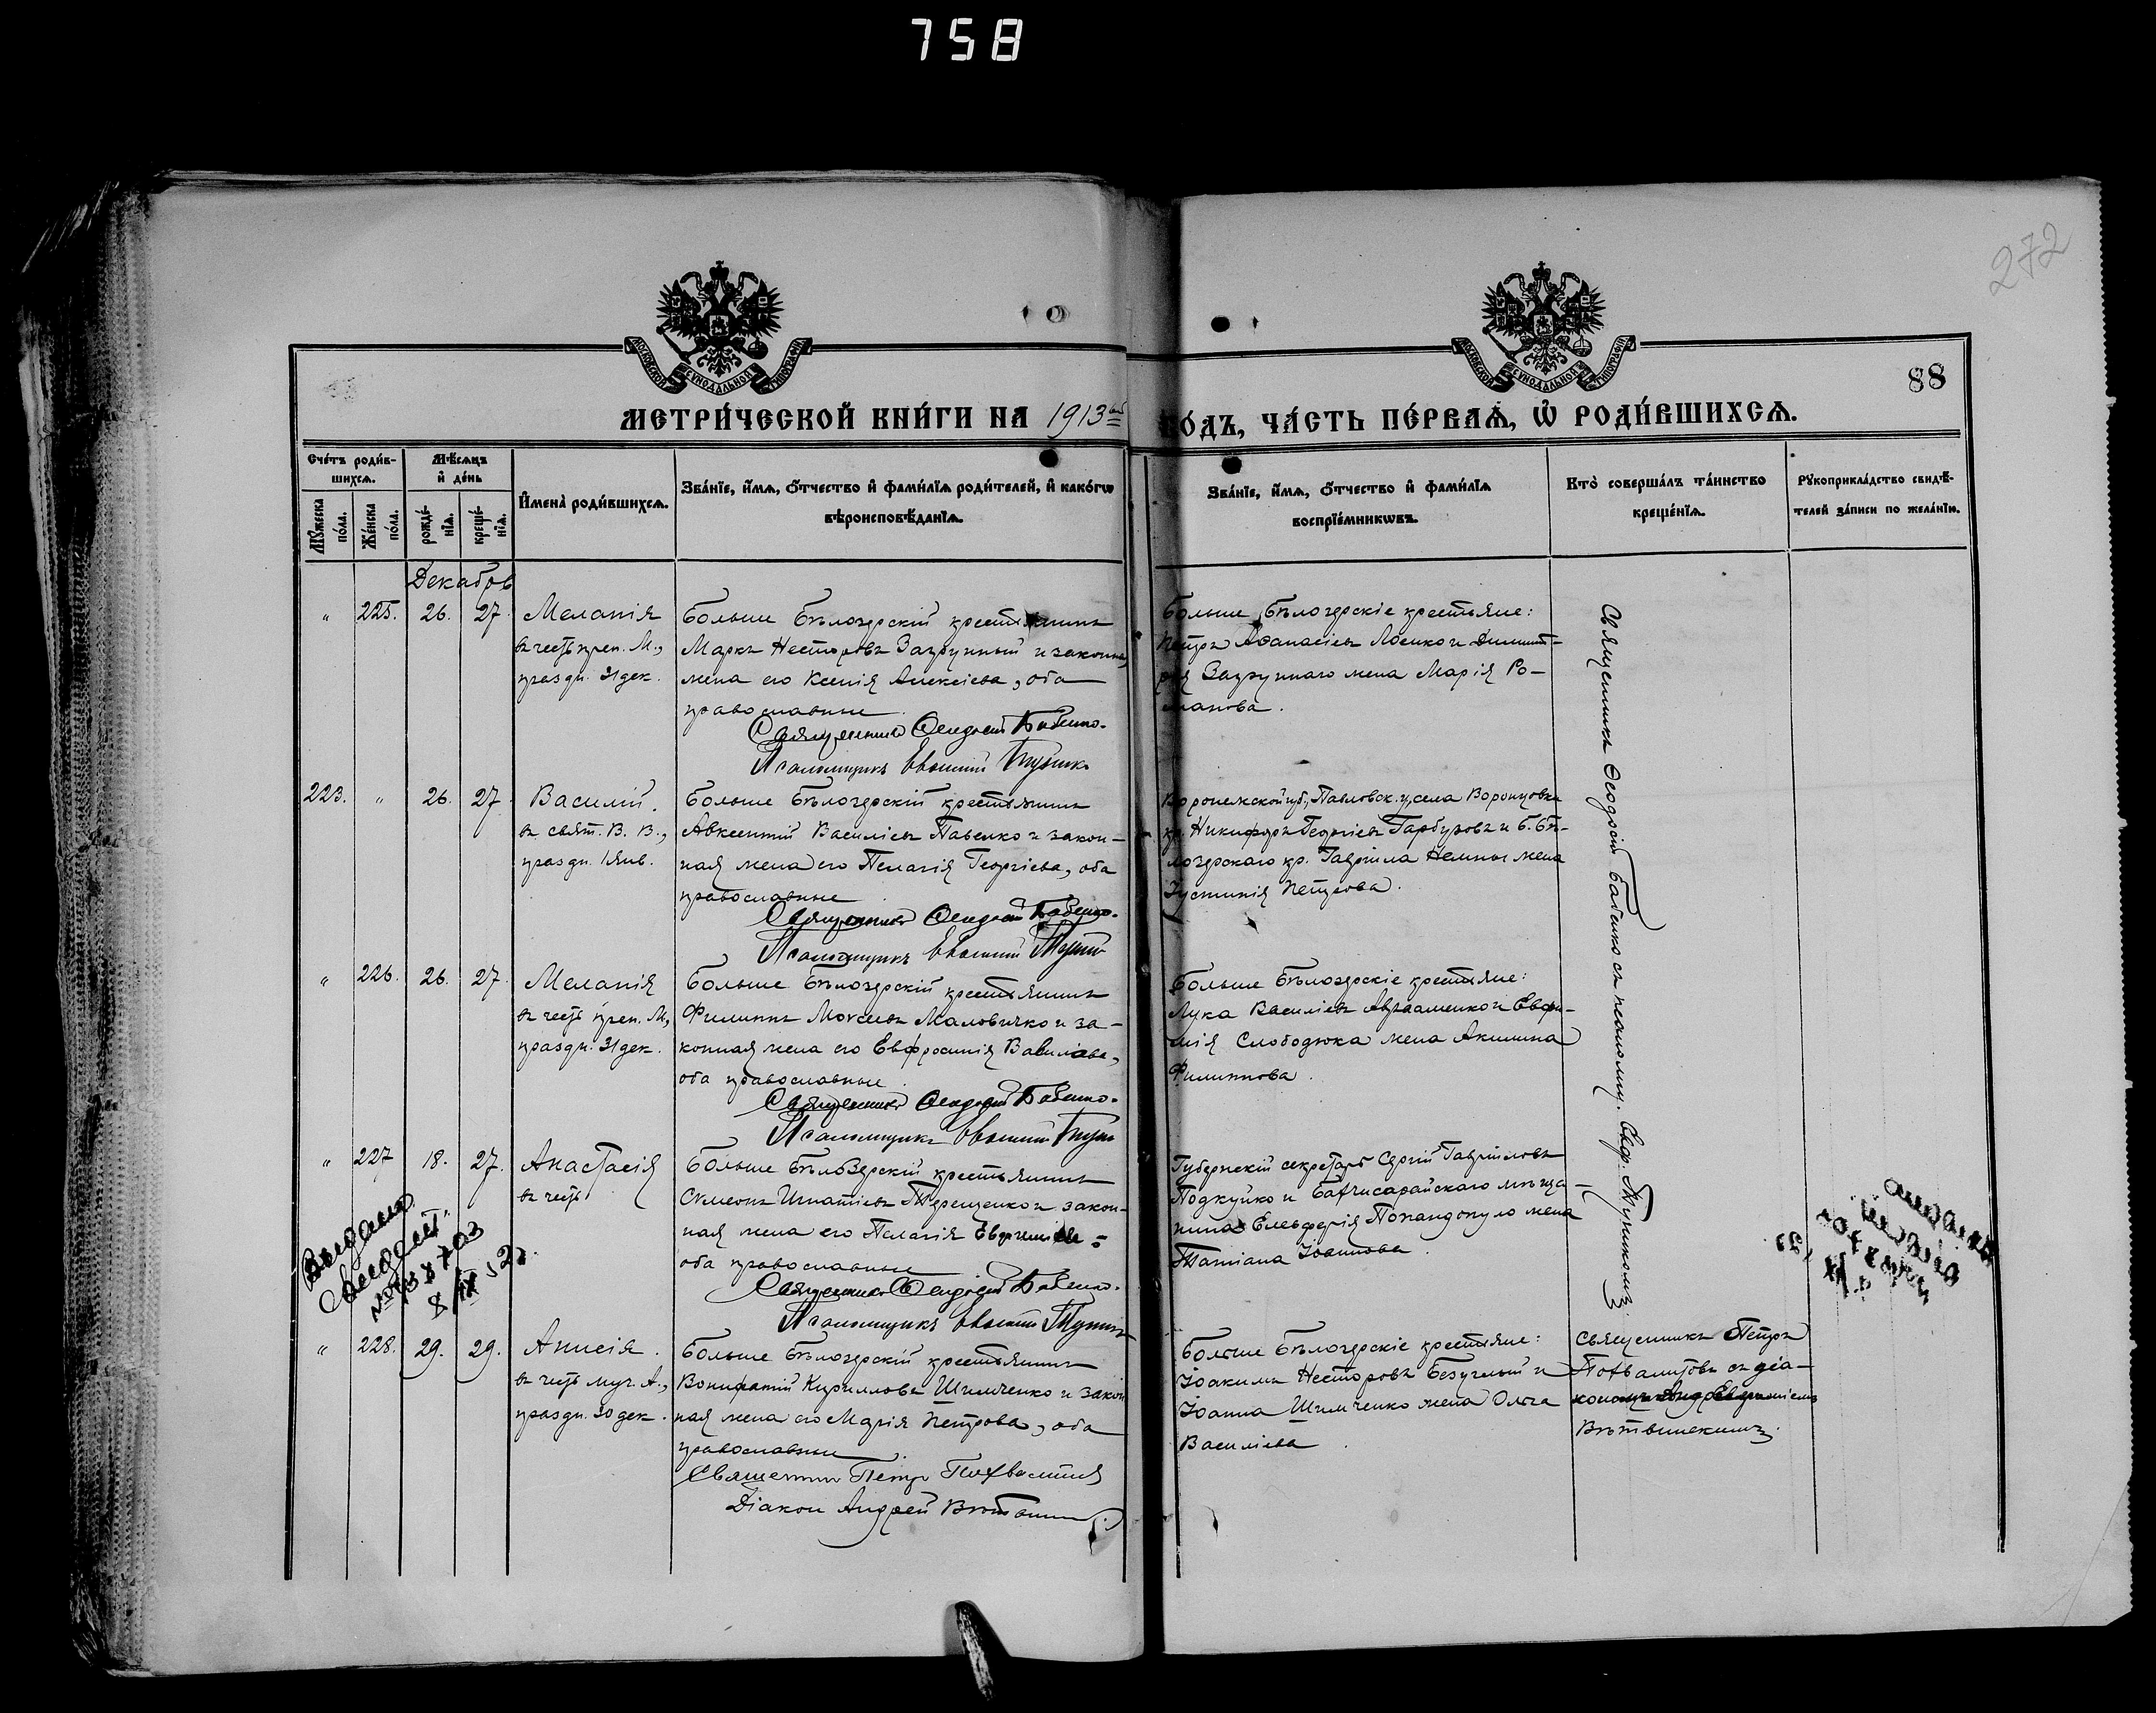 758
272
МОСКОВСКОЙ СѴНОДАЛЬНОЙ ТИПОГРАФІИ
МОСКОВСКОЙ СѴНОДАЛЬНОЙ ТИПОГРАФІИ
88
МЕТРИ́ЧЕСКОЙ КНИ́ГИ НА 1913
ГО́ДЪ, ЧА́СТЬ ПЕ́РВАѦ, Ѡ҆ РОДИ́ВШИХСѦ.
Сче́тъ роди́в-
шихсѧ.
Мꙋ́жеска по́ла.
Же́нска по́ла.
Мѣ́сѧцъ
и҆ де́нь
рожде́-
нїѧ.
креще́-
нїѧ.
И҆мена̀ роди́вшихсѧ.
Зва́нїе, и҆́мѧ, ѻ҆́тчество и҆ фами́лїѧ роди́телей, и҆ како́гѡ
вѣроисповѣ́данїѧ.
Зва́нїе, и҆́мѧ, ѻ҆́тчество и҆ фами́лїѧ
воспрїе́мникѡвъ.
Кто̀ соверша́лъ та́инство
креще́нїѧ.
Рꙋкоприкла́дство свидѣ́-
телей за́писи по жела́нїю.
Декабрь
" 225. 26. 27. Меланія
въ честь преп. М.,
праздн. 31 дек.
Больше Бѣлозерскій крестьянинъ
Маркъ Несторовъ Загрунный и законная
жена его Ксенія Алексіева, оба
православные.
Священникъ Ѳеодосій Бабенко.
Псаломщикъ Евгеній
Больше Бѣлозерскіе крестьяне:
Петръ Аѳанасіевъ Лоенко и Димит-
рія Загруннаго жена Марія Ро-
манова.
223. " 26. 27. Василій.
въ свят. В. В.,
праздн. 1 янв.
Больше Бѣлозерскій крестьянинъ
Авксентій Василіевъ Павелко и закон-
ная жена его Пелагія Георгіева, оба
православные
Священникъ Ѳеодосій Бабенко.
Псаломщикъ Евгеній
Воронежской губ., Павловск. у., села Воронцовки
кр. Никифоръ Георгіевъ Гарбузовъ и Б. Бѣ-
лозерскаго кр. Гавріила Немны жена
Іустинія Петрова.
" 226. 26. 27. Меланія
въ честь преп. М.,
праздн. 31 дек.
Больше Бѣлозерскій крестьянинъ
Филиппъ Моисеевъ Маловичко и за-
конная жена его Евфросинія Вавилова,
оба православные.
Священникъ Ѳеодосій Бабенко.
Псаломщикъ Евгеній
Больше Бѣлозерскіе крестьяне:
Лука Василіевъ Авраменко и Евфи-
мія Слободюка жена Акилина
Филиппова.
" 227 18. 27. Анастасія
въ честь
Больше Бѣлозерскій крестьянинъ
Сѵмеонъ Игнатіевъ Терещенко и закон-
ная жена его Пелагія
оба православные
Священникъ Ѳеодосій Бабенко.
Псаломщикъ Евгеній
Губернскій секретарь Сергій Гавріиловъ
Подкуйко и Бахчисарайскаго мѣща-
нина Елевферія Попандопуло жена
Татіана Іоаннова.
Священникъ Ѳеодосій Бабенко съ псаломщ.
Выдано
" 228. 29. 29. Анисія.
въ честь муч. А.,
праздн. 30 дек.
Больше Бѣлозерскій крестьянинъ
Вонифатій Кирилловъ Шимченко и закон
ная жена его Марія Петрова, оба
православные.
Священникъ Петръ
Діаконъ Андрей
Больше Бѣлозерскіе крестьяне:
Іоакимъ Несторовъ Безуглый и
Іоанна Шимченко жена Ольга
Василіева.
Священникъ Петръ
съ діа-
кономъ